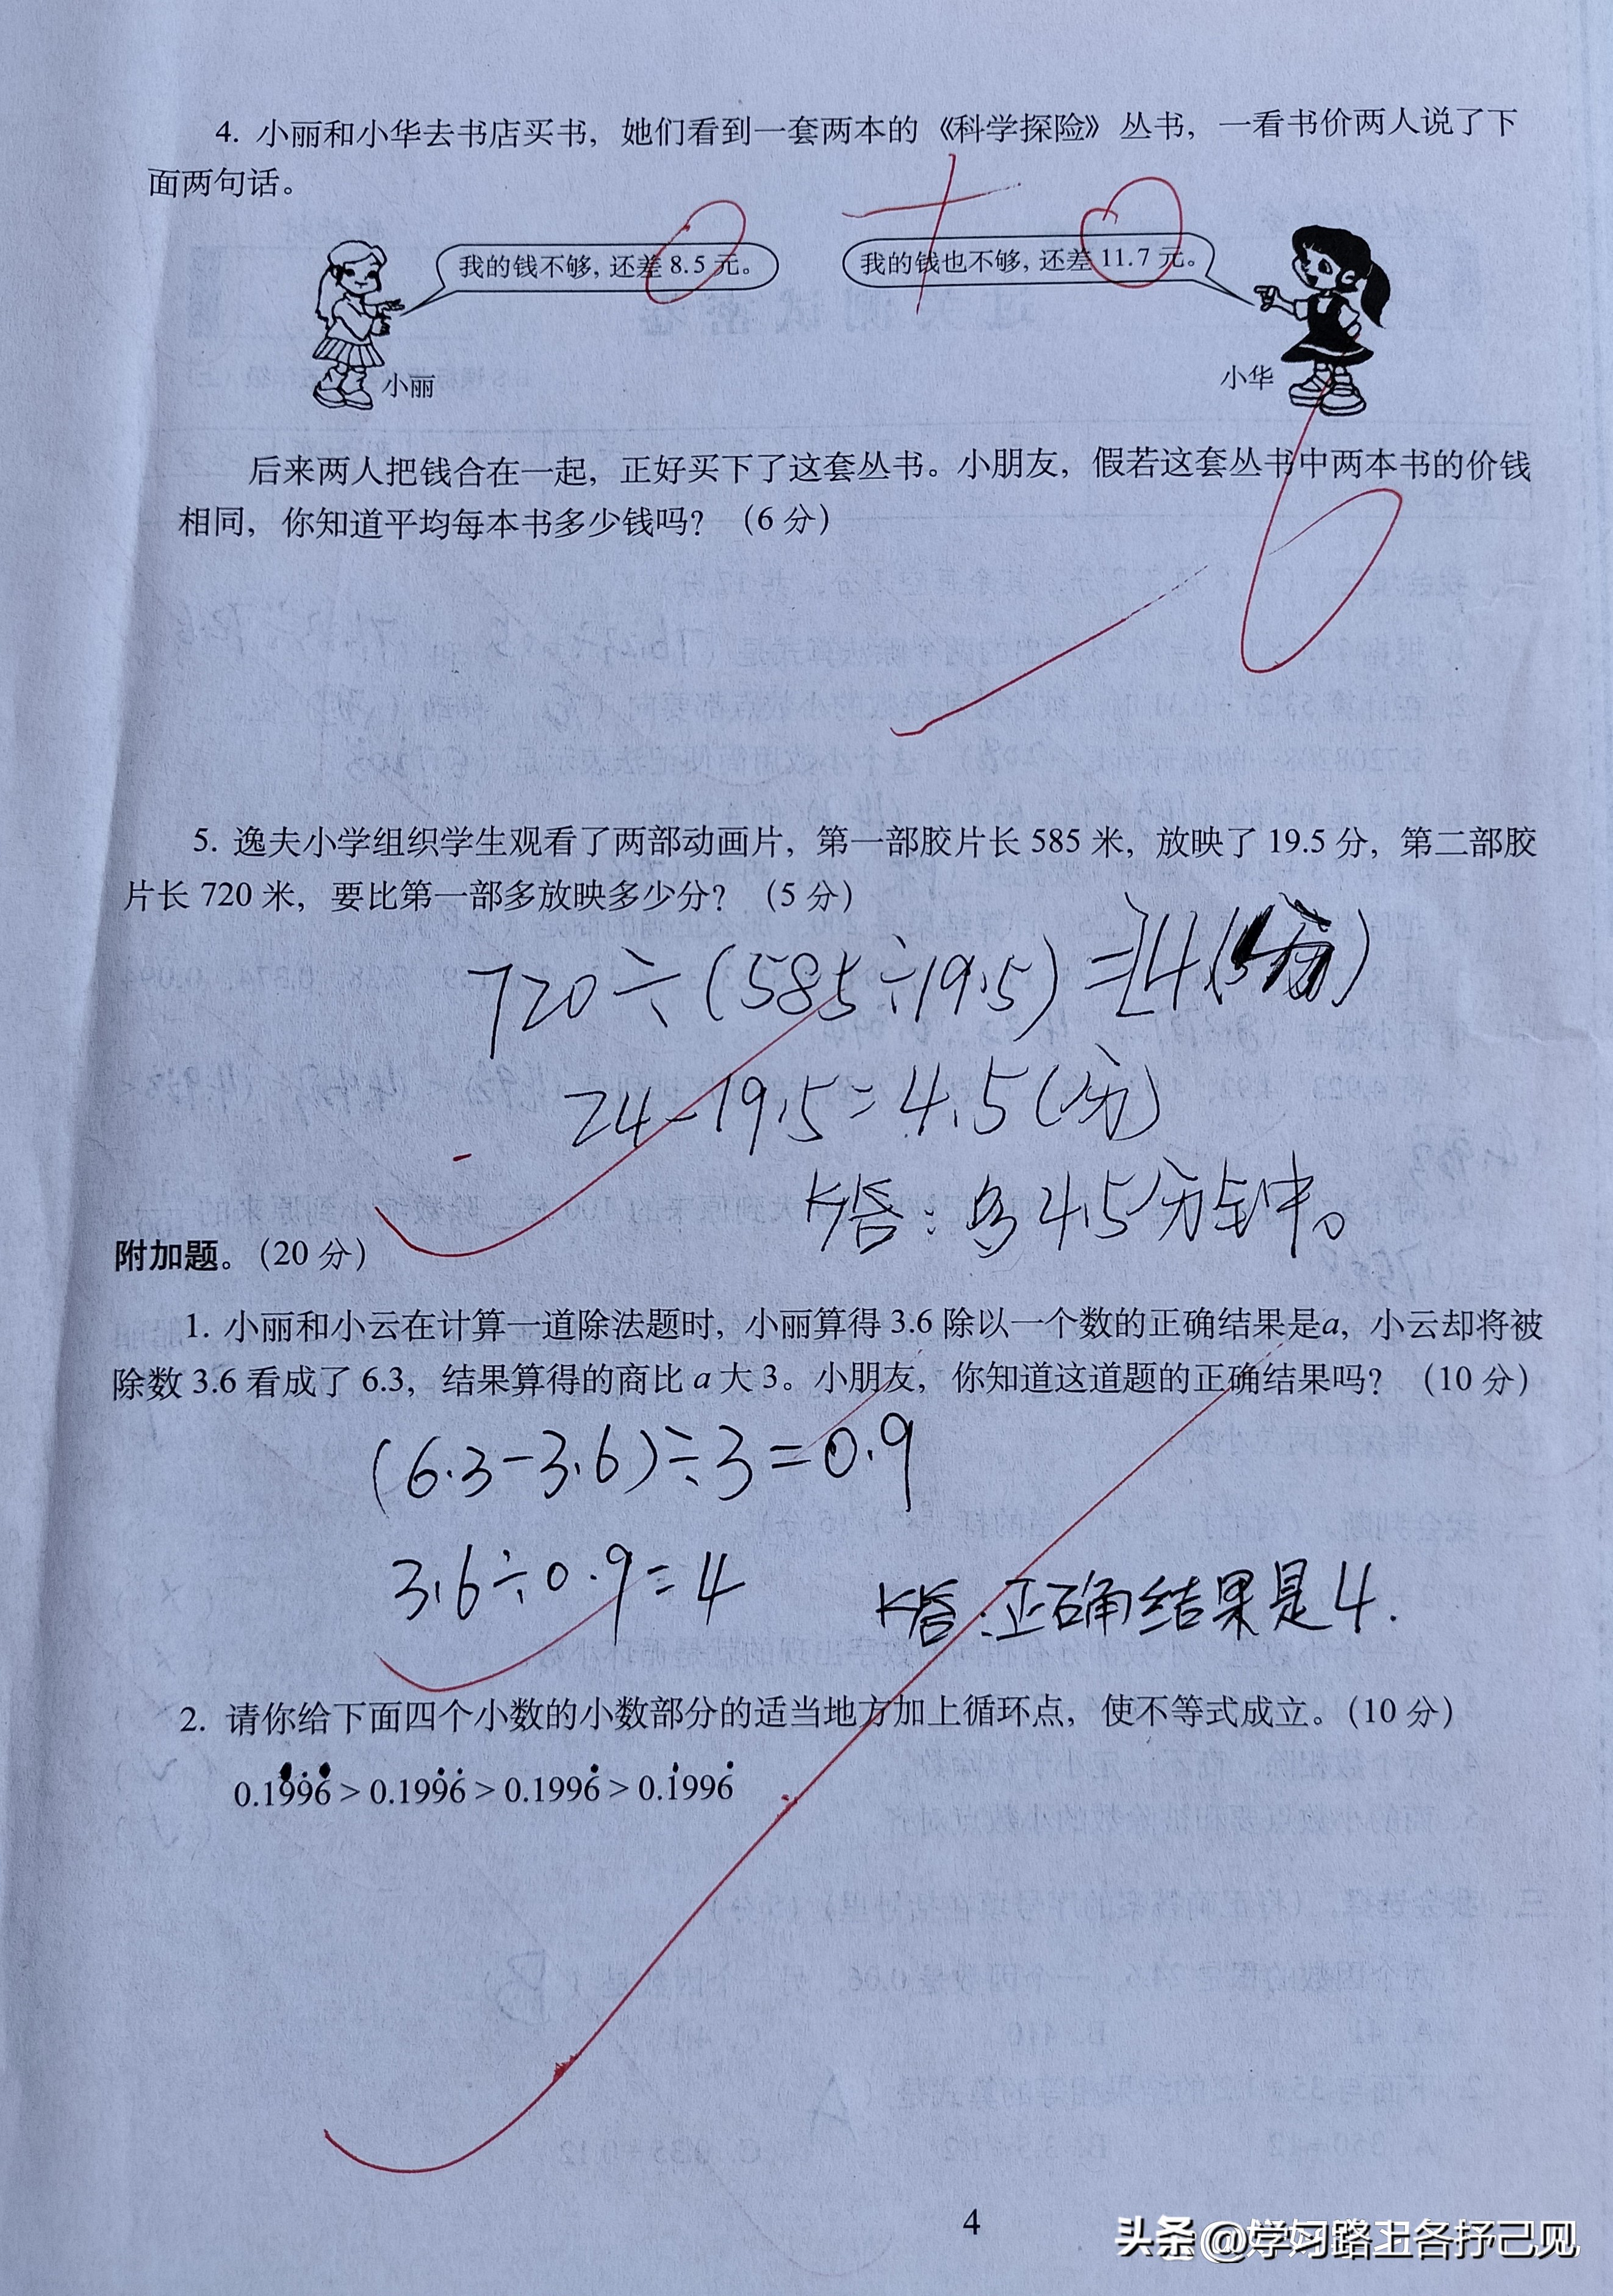 4. 小丽和小华去书店买书，她们看到一套两本的《科学探险》丛书，一看书价两人说了下
面两句话。
我的钱不够，还差 8.5 元。
我的钱也不够，还差 11.7 元。
小丽
小华
后来两人把钱合在一起，正好买下了这套丛书。小朋友，假若这套丛书中两本书的价钱
相同，你知道平均每本书多少钱吗？（6 分）
5. 逸夫小学组织学生观看了两部动画片，第一部胶片长 585 米，放映了 19.5 分，第二部胶
片长 720 米，要比第一部多放映多少分？（5 分）
720÷(585÷19.5)=24(分)
24-19.5=4.5(分)
答：多4.5分钟。
附加题。（20 分）
1. 小丽和小云在计算一道除法题时，小丽算得 3.6 除以一个数的正确结果是a，小云却将被
除数 3.6 看成了 6.3，结果算得的商比 a 大 3。小朋友，你知道这道题的正确结果吗？（10 分）
(6.3-3.6)÷3=0.9
3.6÷0.9=4
答：正确结果是4.
2. 请你给下面四个小数的小数部分的适当地方加上循环点，使不等式成立。（10 分）
0.19̇96̇ > 0.199̇6̇ > 0.1996̇ > 0.1̇996̇
4
头条@学习路上各抒己见